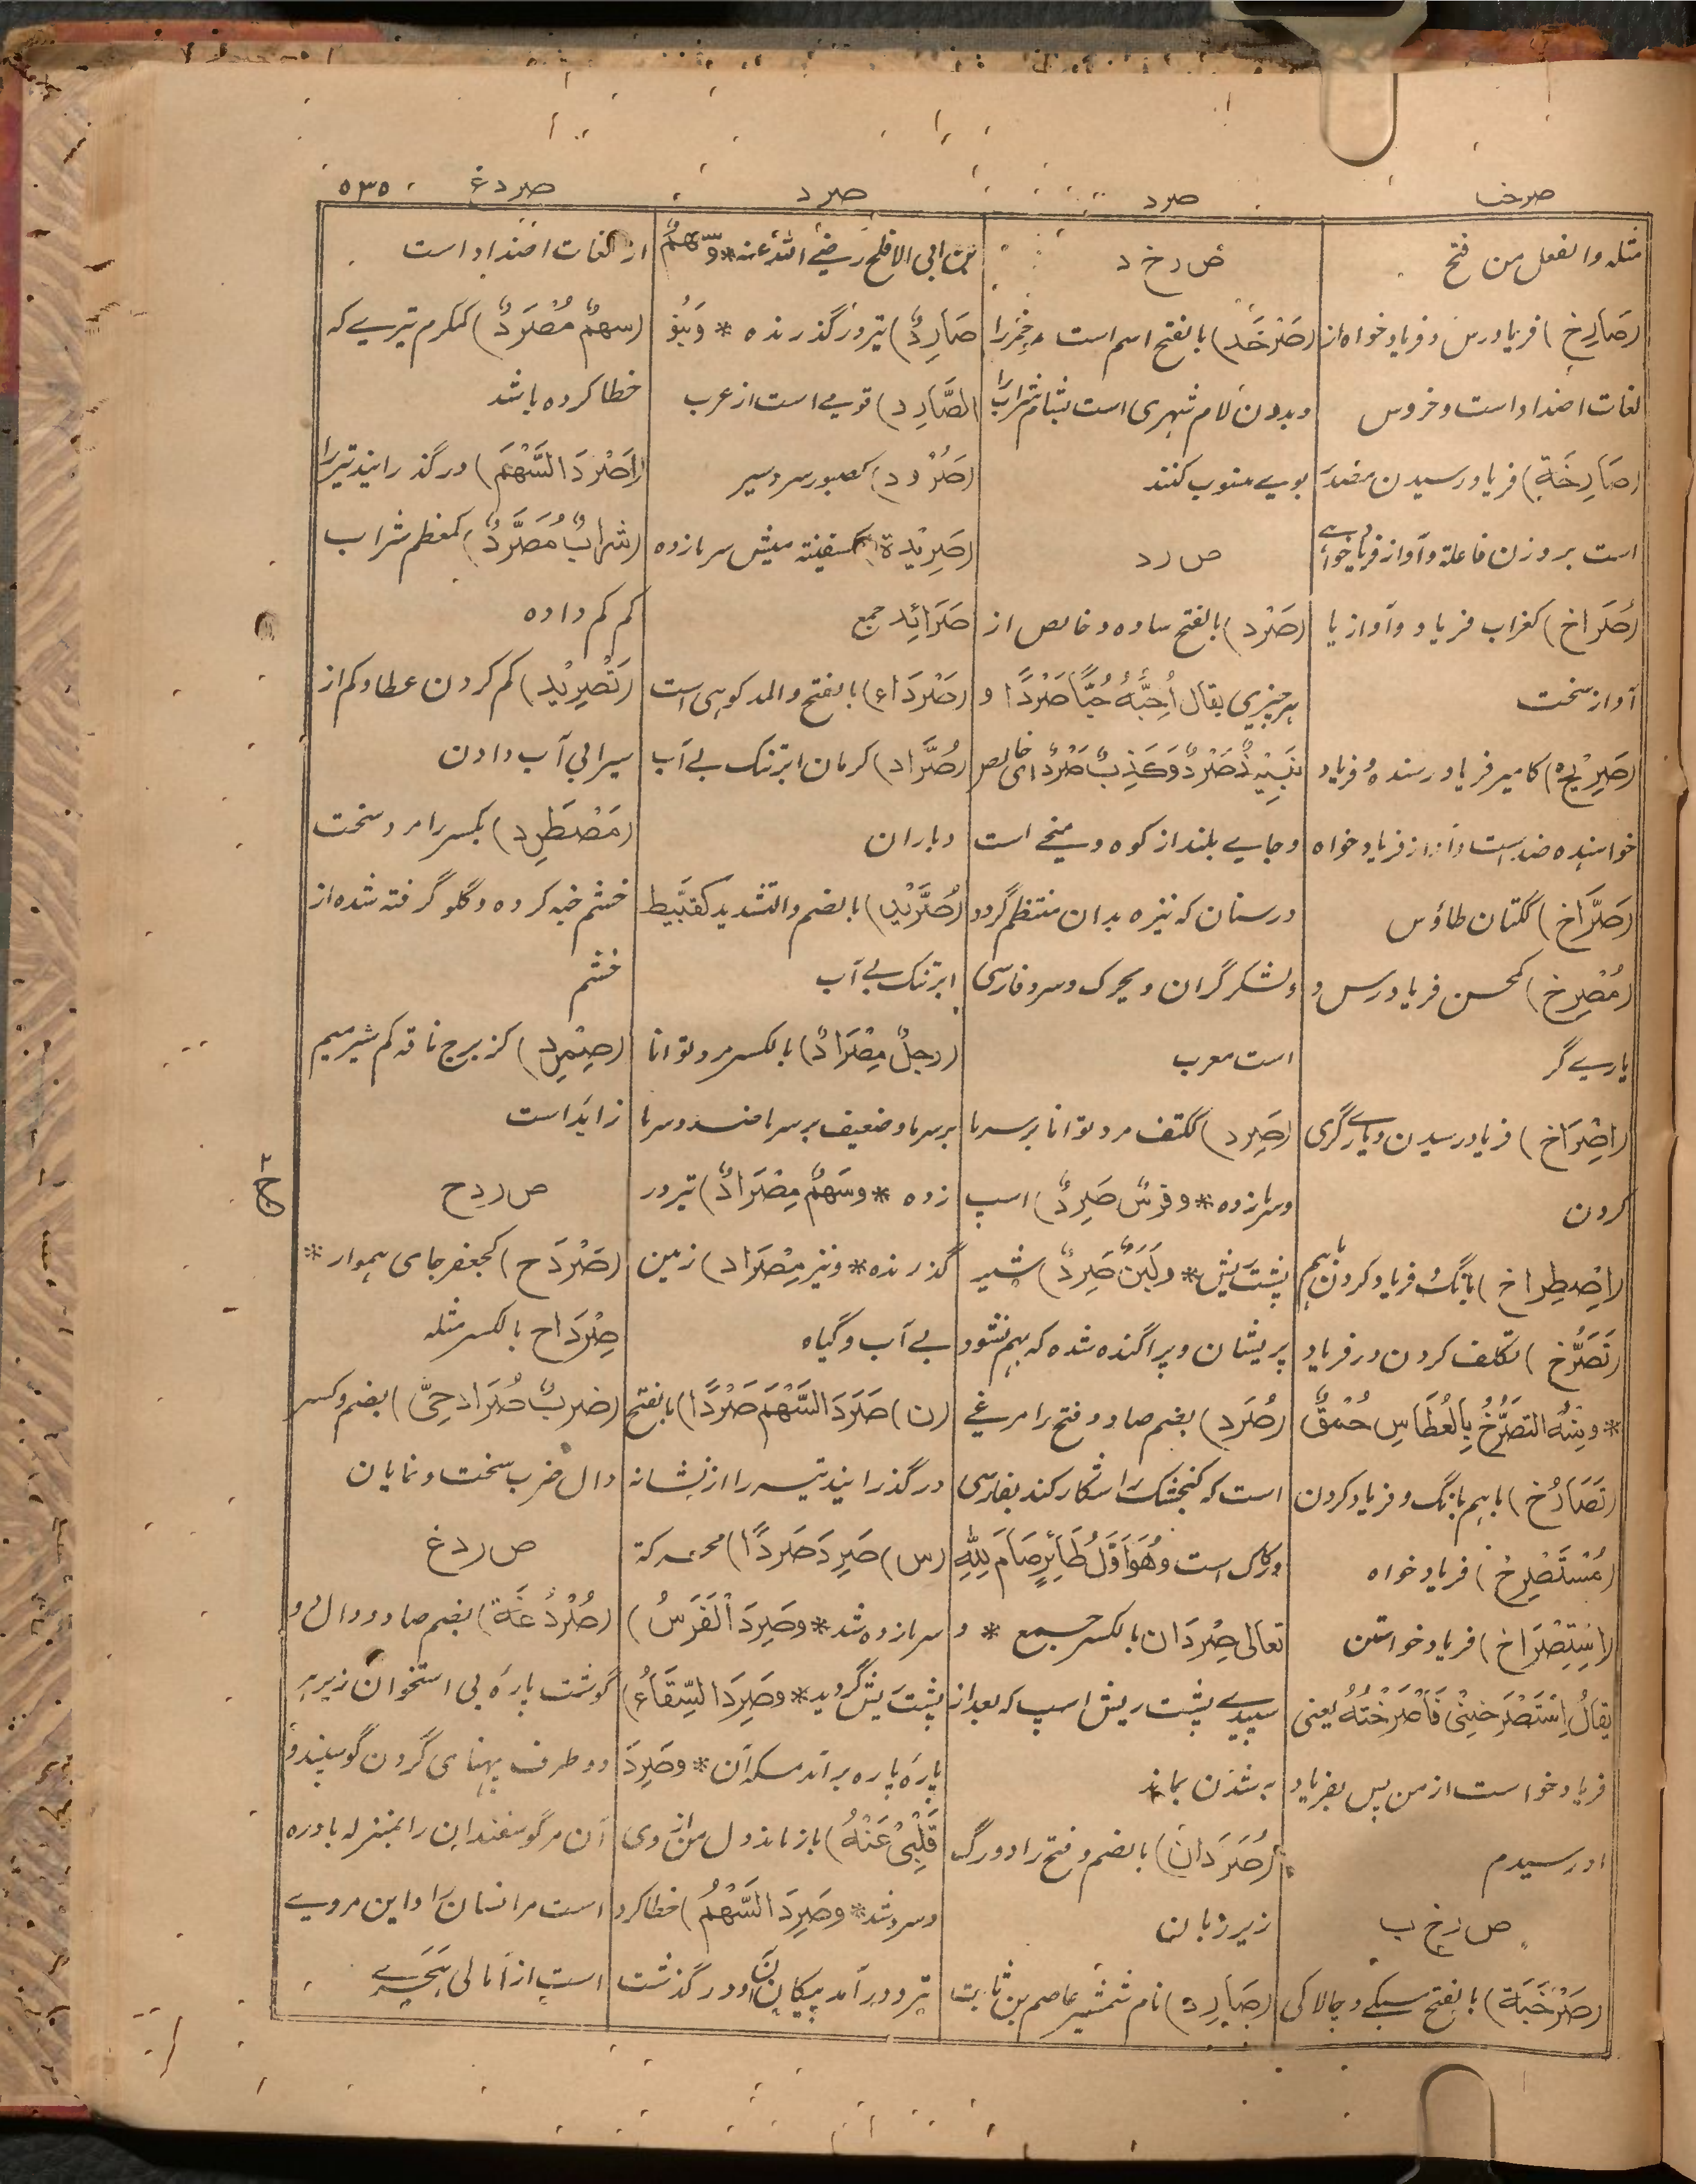 صرخ
صرد
صرد
صردغ
۵۳۵
مثله والفعل من فتح
(صَارِخ) فریادرس و فریاد خواه از
لغات اضداد است و خروس
(صَارِخَة) فریاد رسیدن مصدر
است بر وزن فاعلة و آواز فریاد خواهی
(صُرَاخ) کغراب فریاد و آواز یا
آواز سخت
(صَرِیْخ) کامیر فریاد رسنده و فریاد
خواهنده ضد است و آواز فریاد خواه
(صَرَّاخ) ککتان طاؤس
(مُصْرِخ) کمحسن فریادرس و
یاری گر
(اِصْرَاخ) فریاد رسیدن و یاری گری
کردن
(اِصْطِرَاخ) بانگ و فریاد کردن باهم
(تَصَرُّخ) تکلف کردن در فریاد
* ومنه التَصَرُّخُ بِالعُطَاسِ حُمْقٌ
(تَصَارُخ) باهم بانگ و فریاد کردن
(مُسْتَصْرِخ) فریاد خواه
(اِسْتِصْرَاخ) فریاد خواستن
یقالُ اِسْتَصْرَخَنِیْ فَاَصْرَخْتُهُ یعنی
فریاد خواست از من پس بفریاد
او رسیدم
ص ر خ ب
(صَرْخَبَة) بالفتح سبکی و چالاکی
ص ر خ د
(صَرْخَد) بالفتح اسم است مر خمر را
و بدون لام شهری است بشام شراب را
بوی منسوب کنند
ص ر د
(صَرْد) بالفتح ساده و خالص از
هر چیزی یقال اُحِبُّهُ حُبًّا صَرْدًا و
نَبِیْذٌ صَرْدٌ وَكَذِبٌ صَرْدٌ ای خالص
و جای بلند از کوه و میخی است
در سنان که نیزه بدان منتظم گردد
و لشکر گران و یحرک و سرد فارسی
است معرب
(صَرِد) ککتف مرد توانا بر سرما
و سرمازده * و فرسٌ صَرِدٌ) اسپ
پشت ریش * ولَبَنٌ صَرِدٌ) شیر
پریشان و پراگنده شده که بهم نشود
(صُرَد) بضم صاد و فتح را مرغی
است که کنجشک را شکار کند بفارسی
ورکاک است وهُوَ اَوَّلُ طَائِرٍ صَامَ لِلّٰهِ
تعالی صِرْدَان بالکسر جمع * و
سپیدی پشت ریش اسپ که بعد از
به شدن بماند
(صُرَدَان) بالضم و فتح را دو رگ
زیر زبان
(صَارِد) نام شمشیر عاصم بن ثابت
بن ابی الاقلح رضی الله عنه * وسَهْمٌ
صَارِدٌ) تیر در گذرنده * وَبَنُو
الصَّارِد) قومی است از عرب
(صَرُوْد) کصبور سردسیر
(صَرِیْدَة) کسفینة میش سرمازده
صَرَائِد جمع
(صَرْدَاء) بالفتح والمد کوهی است
(صُرَّاد) کرمان ابر تنک بی آب
و باران
(صُرَّیْد) بالضم والتشدید کقبّیط
ابر تنک بی آب
(رجلٌ مِصْرَادٌ) بالکسر مرد توانا
بر سرما و ضعیف بر سرما ضد و سرما
زده * وسَهمٌ مِصْرَادٌ) تیر در
گذرنده * و نیز مِصْرَاد) زمین
بی آب و گیاه
(ن) صَرَدَ السَّهْمَ صَرْدًا) بالفتح
در گذرانید تیر را از نشانه
(س) صَرِدَ صَرَدًا) محرکة
سرمازده شد * وصَرِدَ الْفَرَسُ)
پشت ریش گردید * وصَرِدَ السِّقَاءُ)
پاره پاره برآمد مسکه آن * وصَرِدَ
قَلْبِیْ عَنْهُ) باز ماند دل من از وی
و سرد شد * وصَرِدَ السَّهْمُ) خطا کرد
تیر و در آمد پیکان آن و در گذشت
از لغات اضداد است
(سهمٌ مُصْرَدٌ) کمکرم تیری که
خطا کرده باشد
(اَصْرَدَ السَّهْمَ) در گذرانید تیر را
(شرابٌ مُصَرَّدٌ) کمعظم شراب
کم کم داده
(تَصْرِیْد) کم کردن عطا و کم از
سیرابی آب دادن
(مُصْطَرِد) بکسر را مرد سخت
خشم خبه کرده و گلو گرفته شده از
خشم
(صِمْرِد) کزبرج ناقه کم شیر میم
زاید است
ص ر د ح
(صَرْدَح) کجعفر جای هموار *
صِرْدَاح بالکسر مثله
(ضربٌ صُرَادِحِیٌّ) بضم و کسر
دال ضرب سخت و نمایان
ص ر د غ
(صُرْدُغَة) بضم صاد و دال و
گوشت پاره بی استخوان زیر هر
دو طرف پهنای گردن گوسپند و
آن مر گوسفندان را بمنزله بادره
است مر انسان را و این مروی
است از امالی هجری
ج ۲